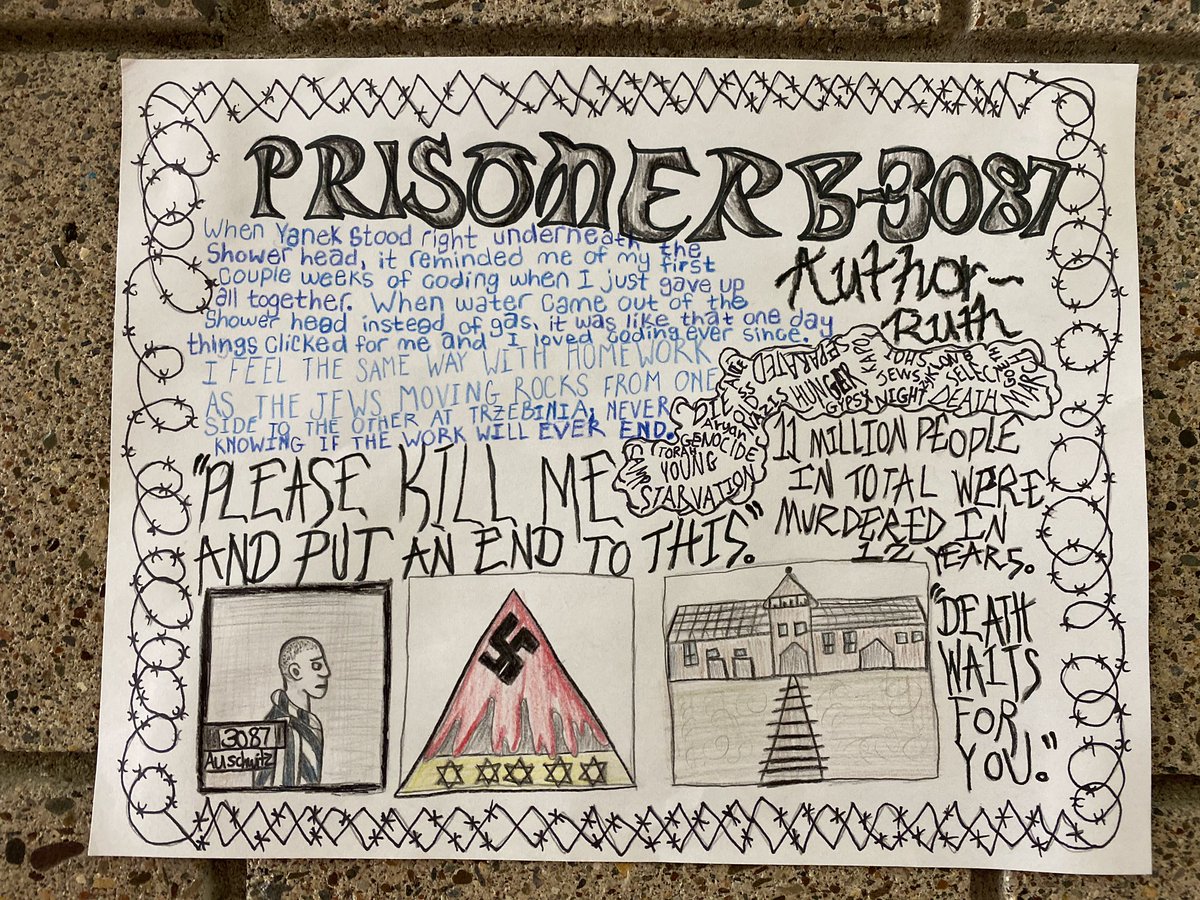 PRISONER B-3087
Author~
Ruth
When Yanek Stood right underneath the
Shower head, it reminded me of my first
couple weeks of coding when I just gave up
all together. When water came out of the
Shower head instead of gas, it was like that one day
things clicked for me and I loved coding ever since.
I FEEL THE SAME WAY WITH HOMEWORK
AS THE JEWS MOVING ROCKS FROM ONE
SIDE TO THE OTHER AT TRZEBINIA, NEVER
KNOWING IF THE WORK WILL EVER END.
SEPARATED
HUNGER
GYPSY
JEWS
NIGHT
SELECT
DEATH
MARCH
NAZIS
DIE
Aryan
GENOCIDE
TORAH
YOUNG
CAMP
STARVATION
11 MILLION PEOPLE
IN TOTAL WERE
MURDERED IN
12 YEARS.
"PLEASE KILL ME
AND PUT AN END TO THIS."
3087
Auschwitz
"DEATH
WAITS
FOR
YOU."